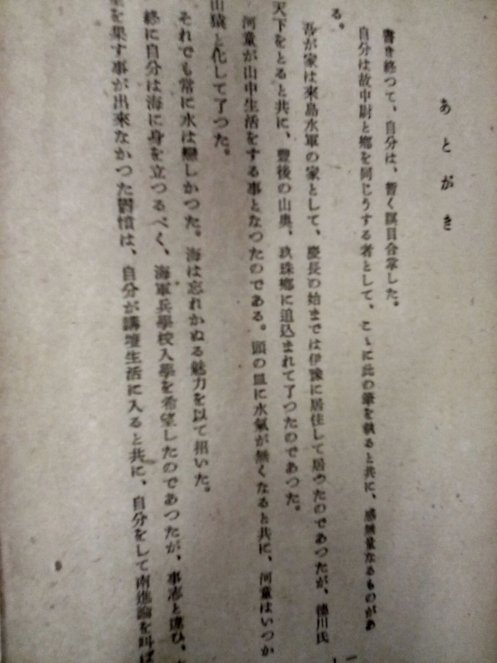 あとがき
書き終つて、自分は、暫く瞑目合掌した。
自分は故中尉と郷を同じうする者として、こゝに此の筆を執ると共に、感無量なるものがあ
る。
吾が家は來島水軍の家として、慶長の始までは伊豫に居住して居つたのであつたが、徳川氏
天下をとると共に、豐後の山奥、玖珠郷に追込まれて了つたのであつた。
河童が山中生活をする事となつたのである。頭の皿に水氣が無くなると共に、河童はいつか
山猿と化して了つた。
それでも常に水は戀しかつた。海は忘れかぬる魅力を以て招いた。
終に自分は海に身を立つるべく、海軍兵學校入學を希望したのであつたが、事志と違ひ、
を果す事が出來なかつた鬱憤は、自分が講壇生活に入ると共に、自分をして南進論を叫ば